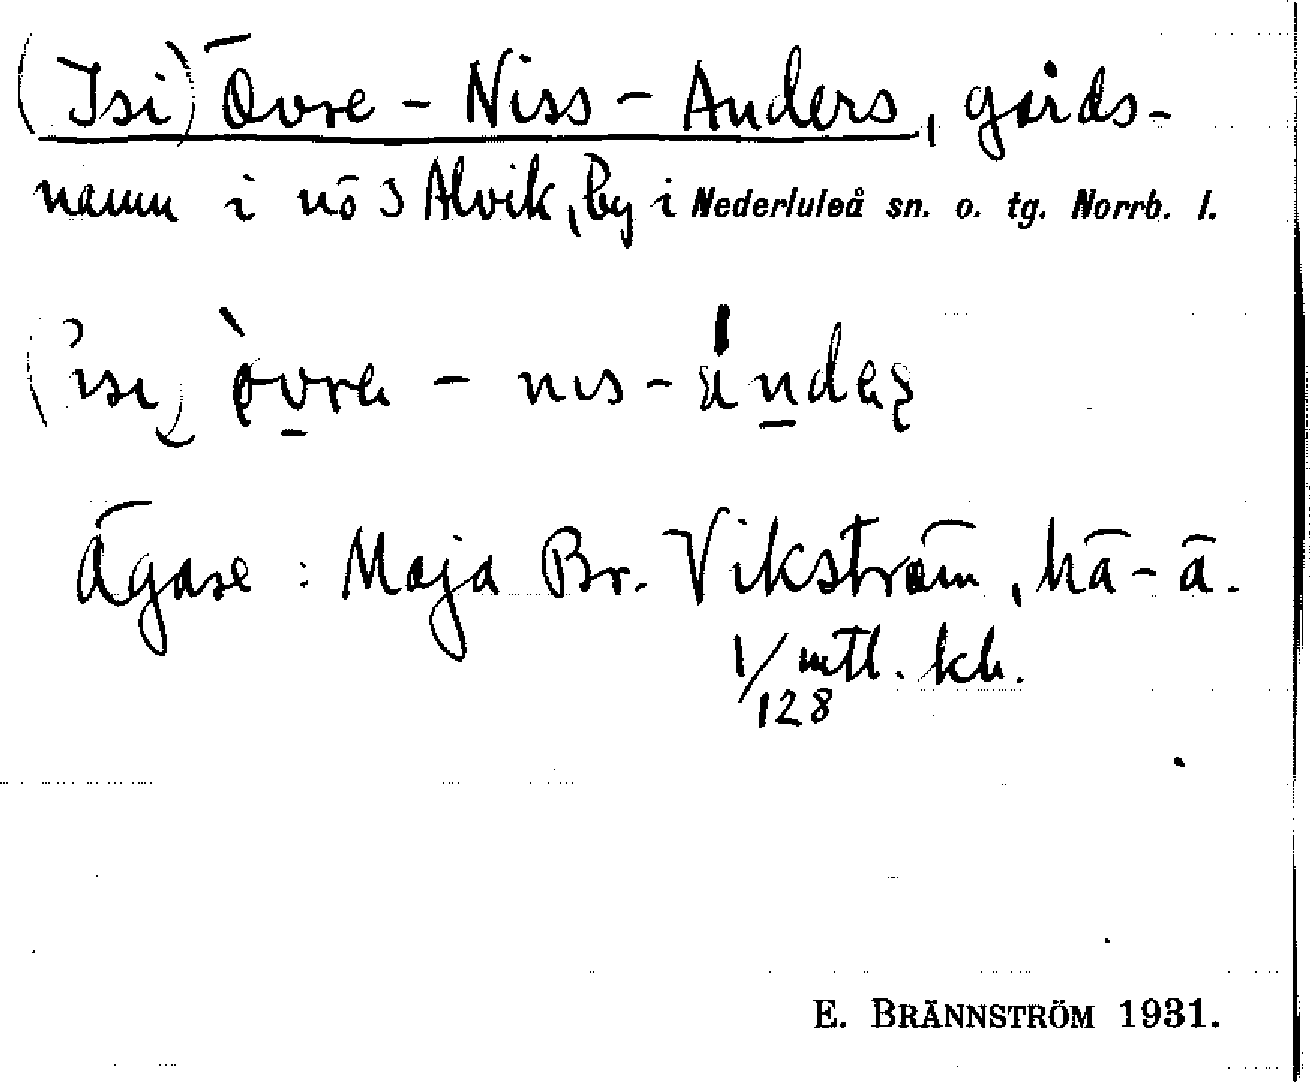 (Isi) Övre - Niss - Anders, gårds-
namn i nö 3 Alvik, by i Nederluleå sn. o. tg. Norrb. l.
Ägare : Maja Br. Vikström, hä-ä.
1/128 mtl. kh.
E. BRÄNNSTRÖM 1931.